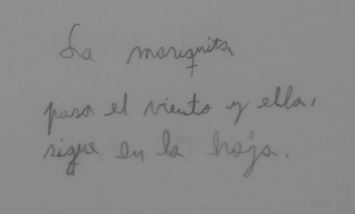 La mariquita
pasa el viento y ella,
sigue en la hoja.